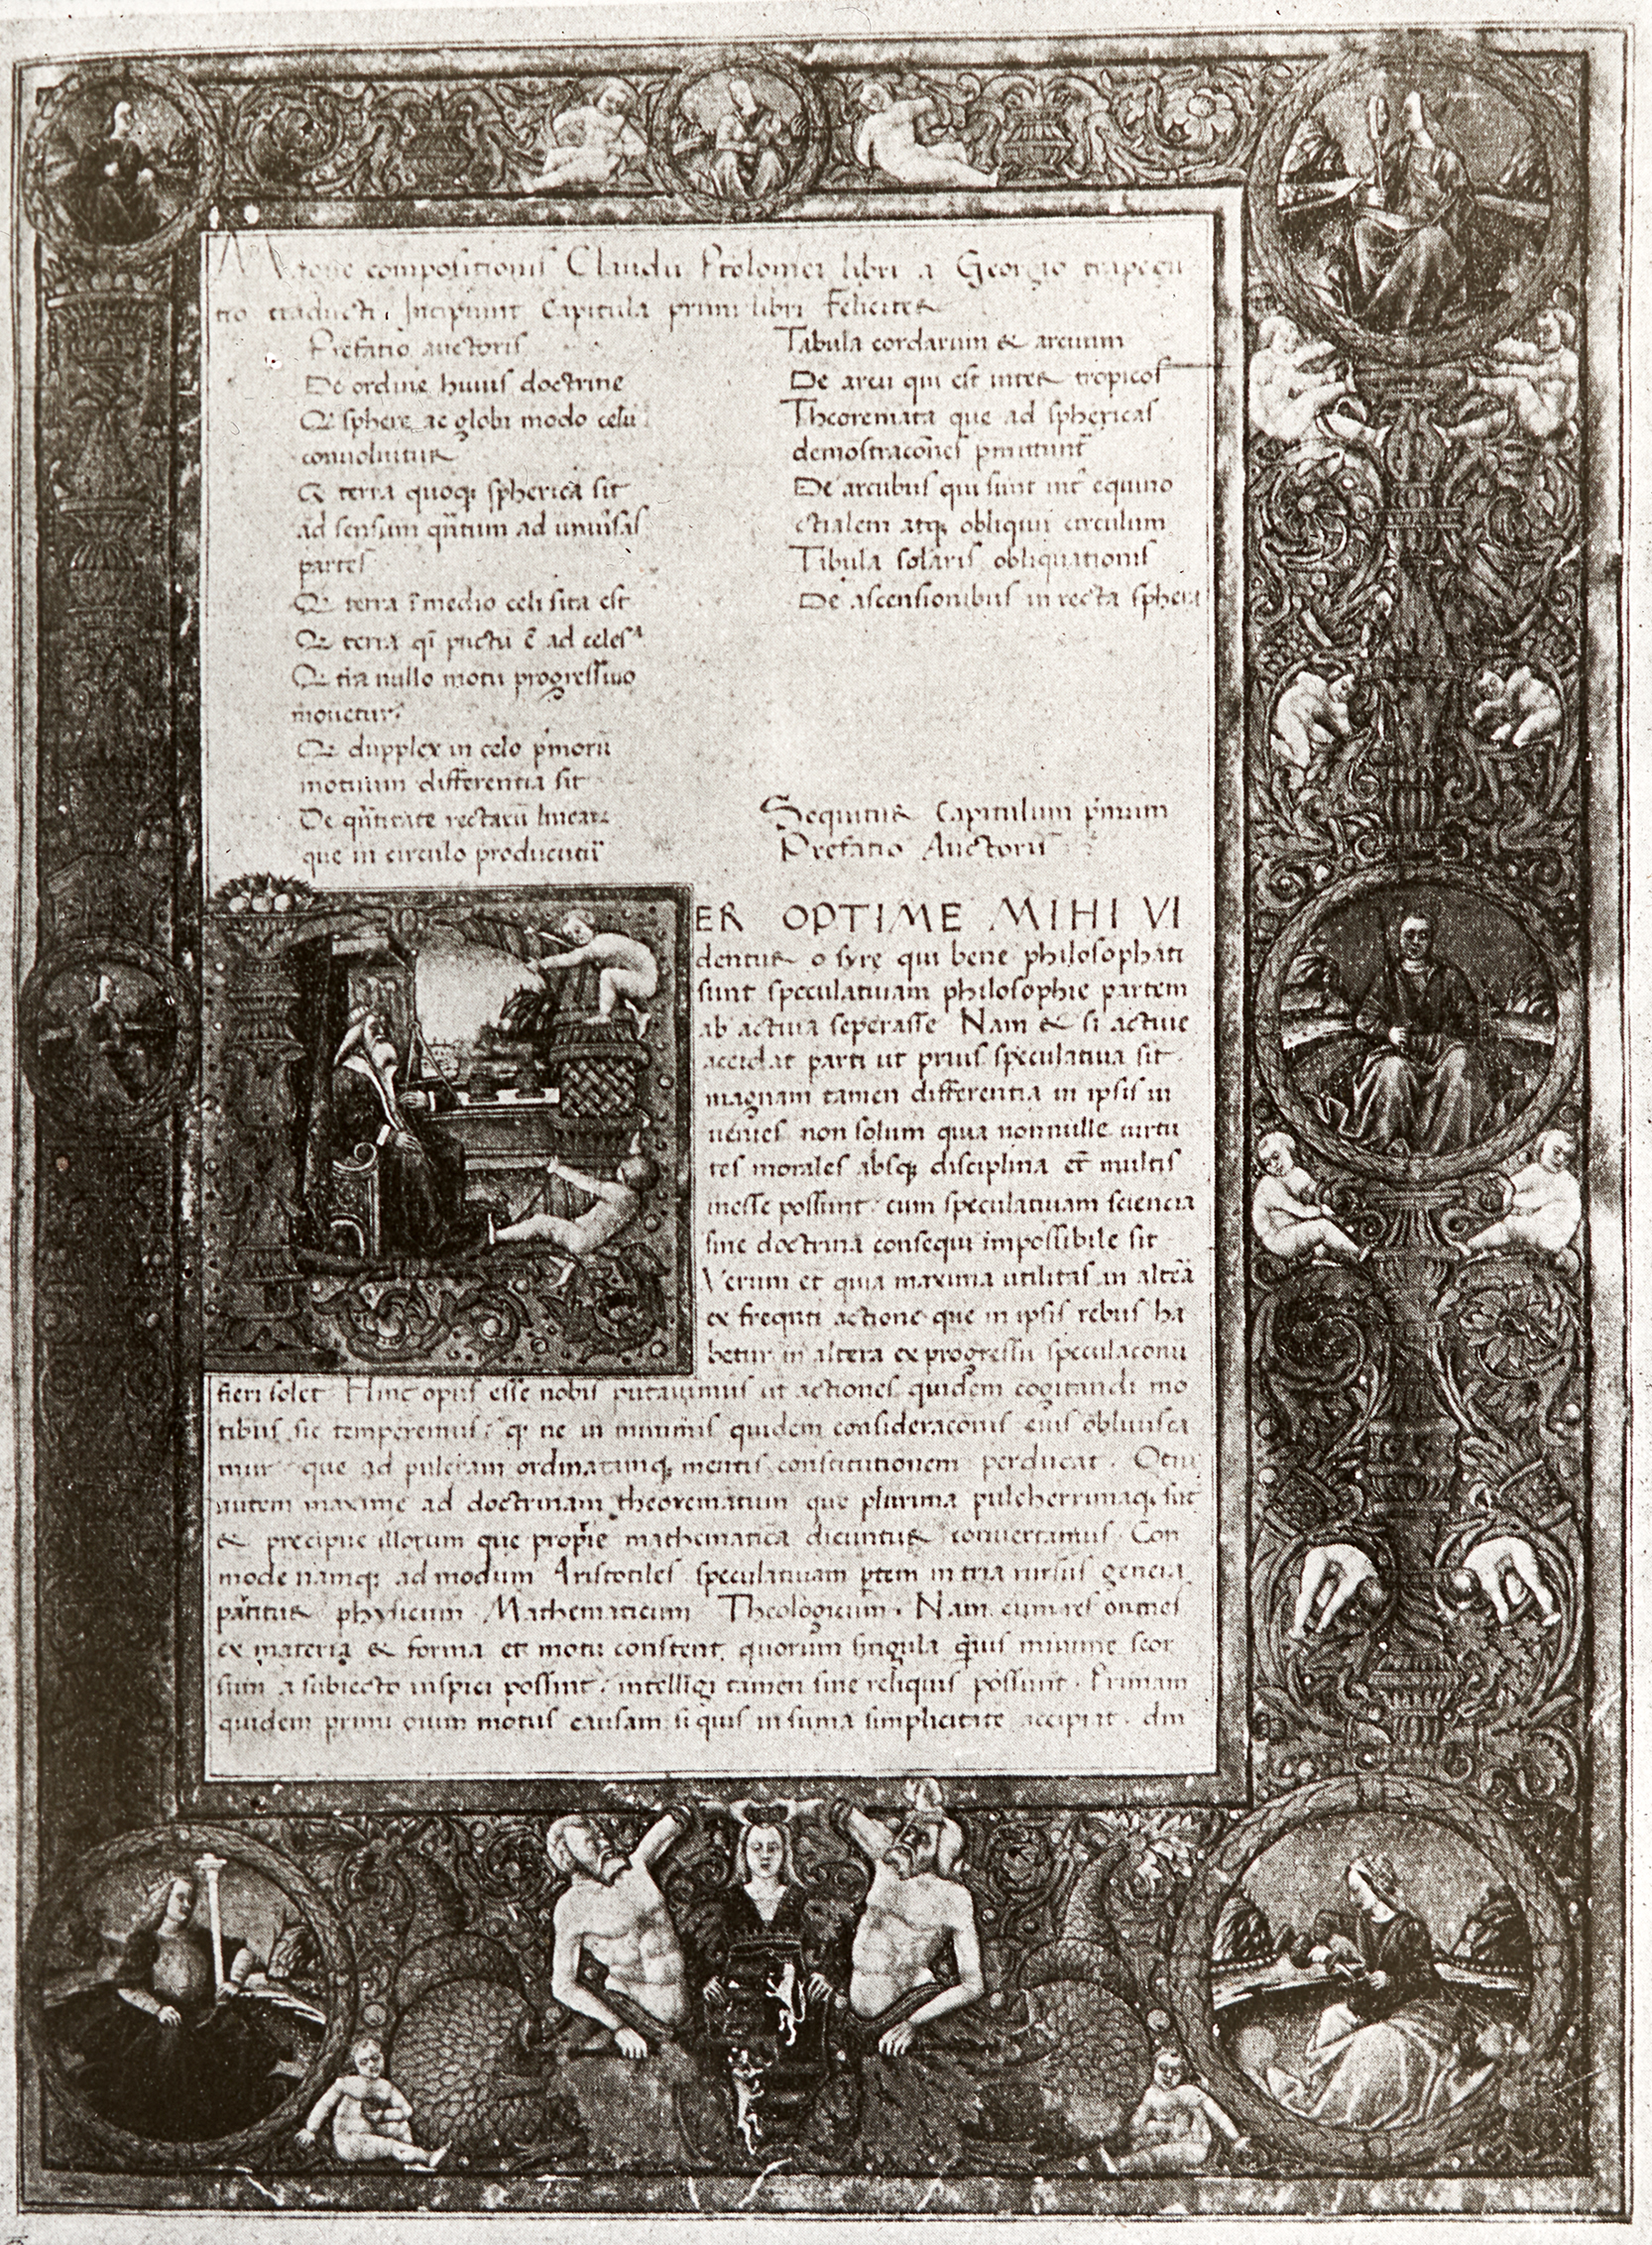 compositionis Claudii Ptolomei libri a Georgio trapezu
tio traducti. Incipiunt Capitula primi libri Feliciter
Prefatio auctoris
De ordine huius doctrine
Q sphere ac globi modo celū
convoluitur
Q terra quoq; spherica sit
ad sensum qn̄tum ad univ̄sas
partes
Q terra ī medio celi sita est
Q terra qī pūctū ē ad celes
Q t̄ra nullo motu progressivo
movetur
Q dupplex in celo p̄morū
motuum differentia sit
De qn̄titate rectarū linear
que in circulo producūtū
Tabula cordarum & arcuum
De arcu qui est inter tropicos
Theoremata que ad sphericas
demostracōnes p̄mittunt
De arcubus qui sunt int̄ equino
ctialem atq; obliquū circulum
Tabula solaris obliquationis
De ascensionibus in recta sphera
Sequitur Capitulum p̄mum
Prefatio Auctoris
ER OPTIME MIHI VI
dentur o syre qui bene philosophati
sunt speculativam philosophie partem
ab activa seperasse Nam & si active
accidat parti ut prius speculativa sit
magnam tamen differentia in ipsis in
venies non solum quia nonnulle virtu
tes morales absq; disciplina et multis
inesse possunt cum speculativam sciencia
sine doctrina consequi impossibile sit
Verum et quia maxima utilitas in alt̄ā
ex freq̄nti actione que in ipsis rebus ha
betur in altera ex progressu speculacōnū
fieri solet Hinc opus esse nobis putavimus ut actiones quidem cogitandi mo
tibus sic temperemus q; ne in minimis quidem consideracōnis eius oblivisca
mur que ad pulcram ordinatamq; mentis constitutionem perducat. Otiū
autem maxime ad doctrinam theorematum que plurima pulcherrimaq; sūt
& precipue illorum que proprie mathematica dicuntur convertamus Con
mode namq; ad modum Aristotiles speculativam p̄tem in tria rursus genera
partitur physicum Mathematicum Theologicum. Nam cum res omnes
ex materia & forma et motu constent quorum singula q̄vis minime seor
sum a subiecto inspici possint intelligi tamen sine reliquis possunt. Primam
quidem primi oīum motus causam si quis in suma simplicitate accipiat. dm̄